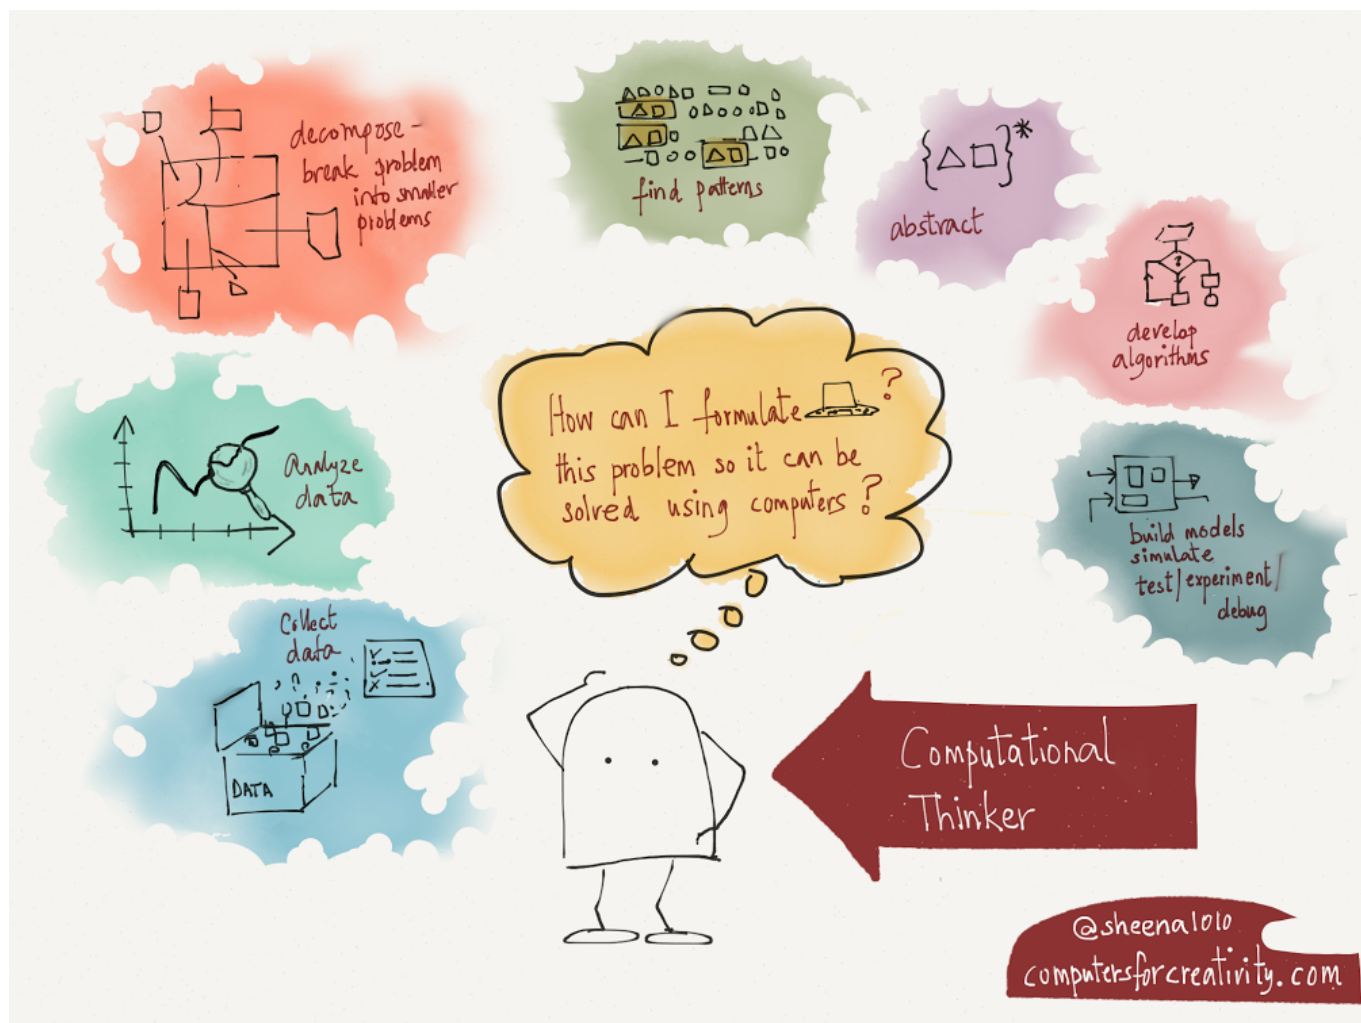 decompose -
break problem
into smaller
problems
find patterns
{ }*
abstract
?
develop
algorithms
How can I formulate ?
this problem so it can be
solved using computers ?
Analyze
data
build models
simulate
test/experiment/
debug
Collect
data
DATA
Computational
Thinker
@sheena1010
computersforcreativity.com